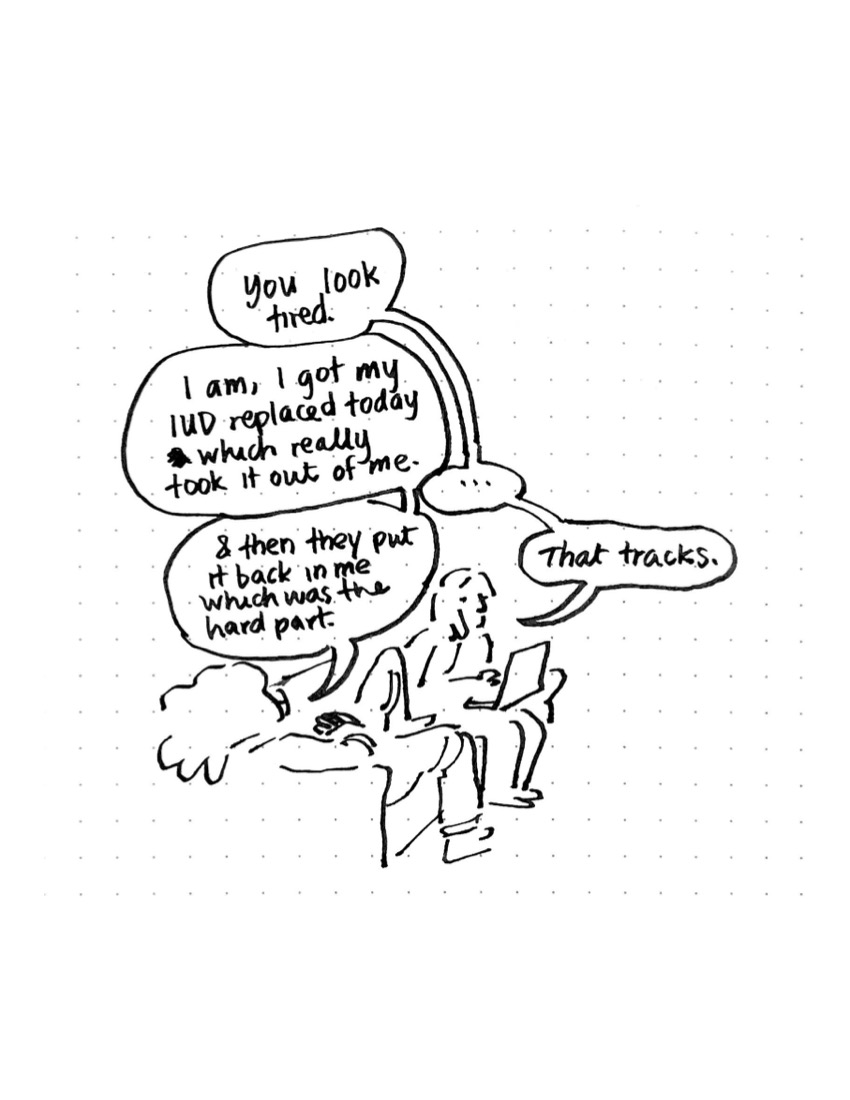 You look
tired.
I am, I got my
IUD replaced today
which really
took it out of me.
...
& then they put
it back in me
which was the
hard part.
That tracks.